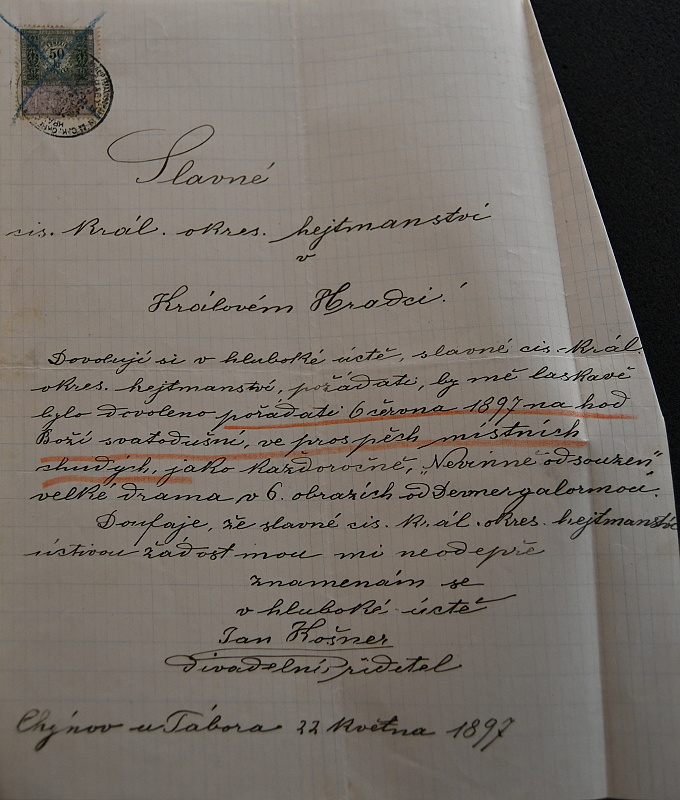 50
Slavné
cis. král. okres. hejtmanství
v
Královém Hradci!
Dovoluji si v hluboké úctě, slavné cis. král.
okres. hejtmanství, požádati, by mě laskavě
bylo dovoleno pořádati 6 června 1897 na hod
Boží svatodušní, ve prospěch místních
chudých, jako každoročně, „Nevinně odsouzen"
velké drama, v 6. obrazích od
Doufaje, že slavné cis. král. okres. hejtmanství
úctivou žádost mou mi neodepře
znamenám se
v hluboké úctě
Jan Košner
Divadelní ředitel
Chýnov u Tábora 22 května 1897